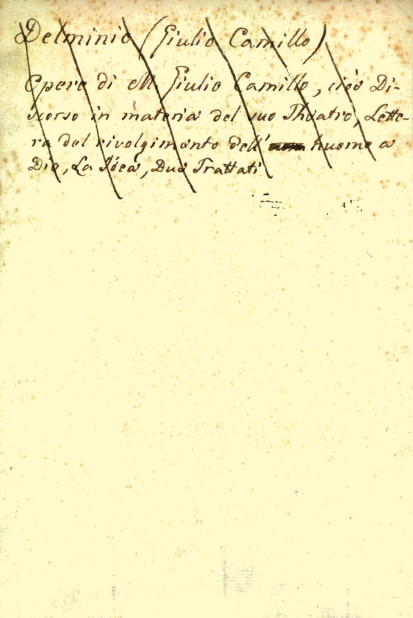 Delminio (Giulio Camillo)
Opere di M Giulio Camillo, cioè Di-
scorso in materia del suo Theatro, Lette-
ra del rivolgimento dell' huomo a
Dio, La Idea, Due Trattati